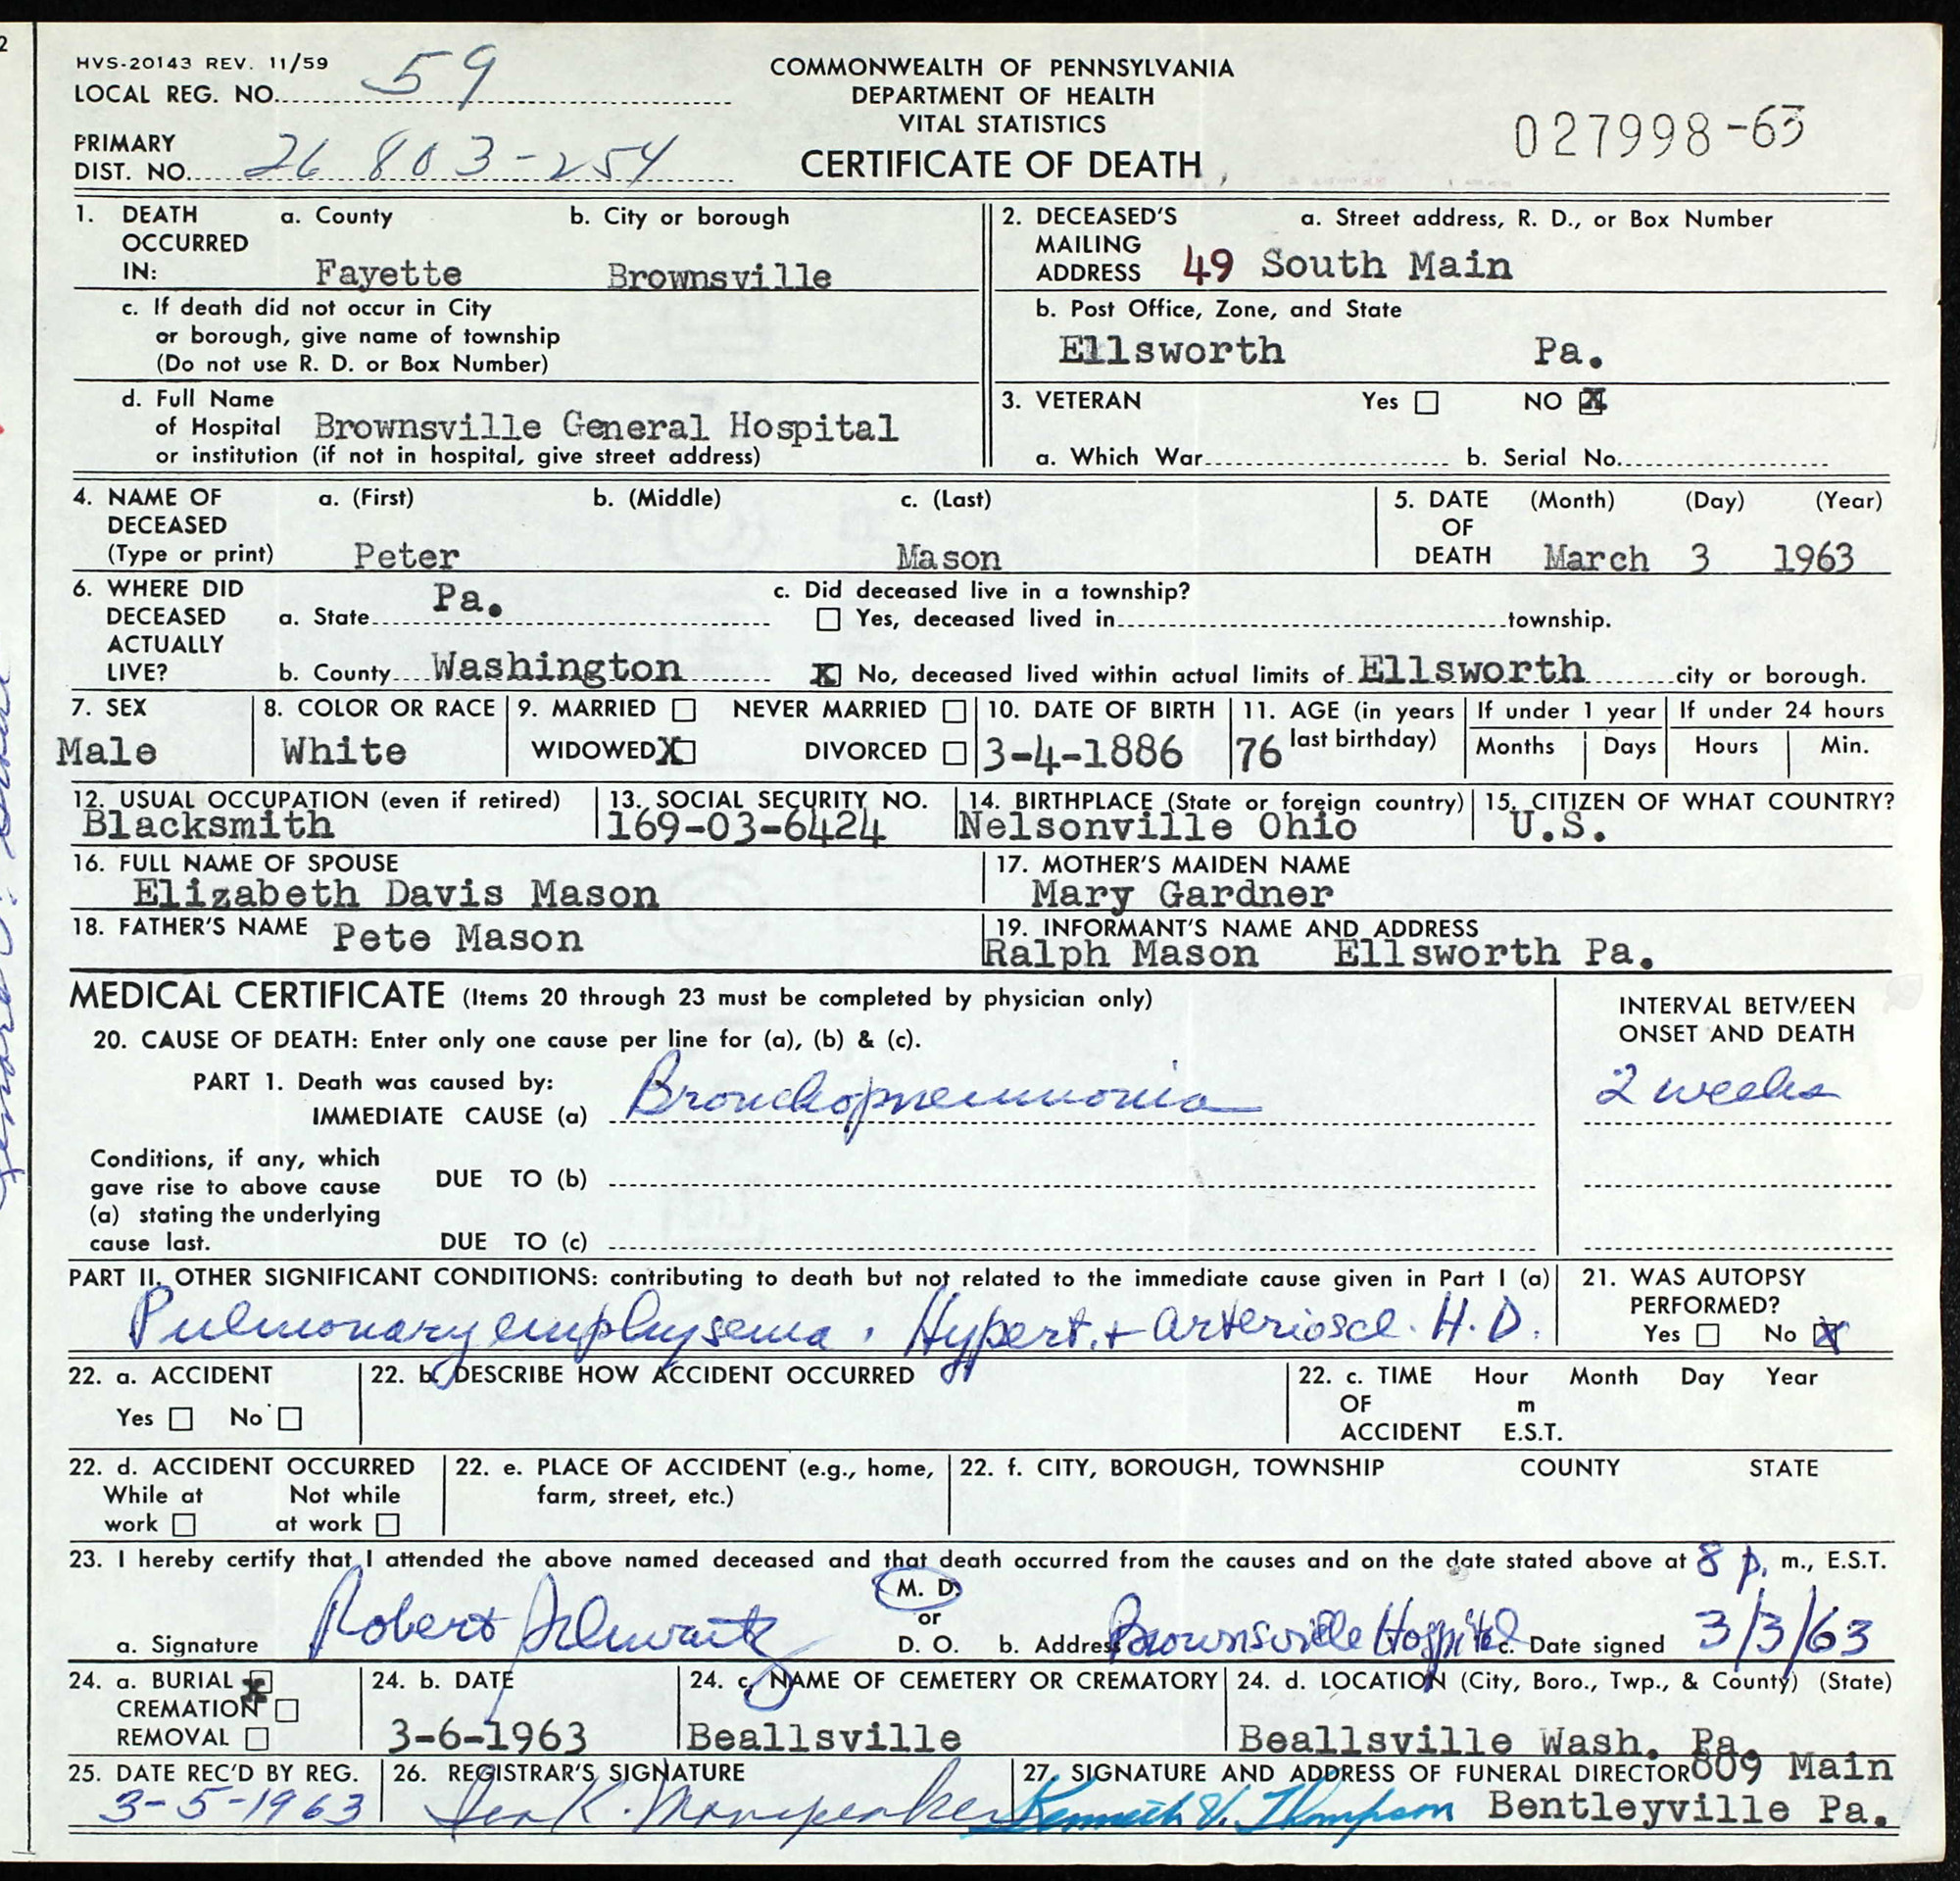 HVS-20143 REV. 11/59
LOCAL REG. NO. 59
PRIMARY
DIST. NO. 26 803-254
COMMONWEALTH OF PENNSYLVANIA
DEPARTMENT OF HEALTH
VITAL STATISTICS
CERTIFICATE OF DEATH
027998-63
1. DEATH OCCURRED IN: a. County b. City or borough
Fayette Brownsville
c. If death did not occur in City
or borough, give name of township
(Do not use R. D. or Box Number)
d. Full Name
of Hospital Brownsville General Hospital
or institution (if not in hospital, give street address)
2. DECEASED'S MAILING ADDRESS a. Street address, R. D., or Box Number
49 South Main
b. Post Office, Zone, and State
Ellsworth Pa.
3. VETERAN Yes NO X
a. Which War b. Serial No.
4. NAME OF DECEASED (Type or print) a. (First) b. (Middle) c. (Last)
Peter Mason
5. DATE OF DEATH (Month) (Day) (Year)
March 3 1963
6. WHERE DID DECEASED ACTUALLY LIVE?
a. State Pa.
b. County Washington
c. Did deceased live in a township?
Yes, deceased lived in township.
X No, deceased lived within actual limits of Ellsworth city or borough.
7. SEX
Male
8. COLOR OR RACE
White
9. MARRIED NEVER MARRIED
WIDOWED X DIVORCED
10. DATE OF BIRTH
3-4-1886
11. AGE (in years last birthday)
76
If under 1 year
Months Days
If under 24 hours
Hours Min.
12. USUAL OCCUPATION (even if retired)
Blacksmith
13. SOCIAL SECURITY NO.
169-03-6424
14. BIRTHPLACE (State or foreign country)
Nelsonville Ohio
15. CITIZEN OF WHAT COUNTRY?
U.S.
16. FULL NAME OF SPOUSE
Elizabeth Davis Mason
17. MOTHER'S MAIDEN NAME
Mary Gardner
18. FATHER'S NAME Pete Mason
19. INFORMANT'S NAME AND ADDRESS
Ralph Mason Ellsworth Pa.
MEDICAL CERTIFICATE (Items 20 through 23 must be completed by physician only)
20. CAUSE OF DEATH: Enter only one cause per line for (a), (b) & (c).
INTERVAL BETWEEN
ONSET AND DEATH
PART 1. Death was caused by:
IMMEDIATE CAUSE (a) Bronchopneumonia 2 weeks
Conditions, if any, which
gave rise to above cause
(a) stating the underlying
cause last.
DUE TO (b)
DUE TO (c)
PART II. OTHER SIGNIFICANT CONDITIONS: contributing to death but not related to the immediate cause given in Part I (a)
Pulmonary emphysema. Hypert. + arterioscl. H.D.
21. WAS AUTOPSY
PERFORMED?
Yes No X
22. a. ACCIDENT
Yes No
22. b. DESCRIBE HOW ACCIDENT OCCURRED
22. c. TIME OF ACCIDENT Hour Month Day Year
m
E.S.T.
22. d. ACCIDENT OCCURRED
While at work Not while at work
22. e. PLACE OF ACCIDENT (e.g., home,
farm, street, etc.)
22. f. CITY, BOROUGH, TOWNSHIP COUNTY STATE
23. I hereby certify that I attended the above named deceased and that death occurred from the causes and on the date stated above at 8 p. m., E.S.T.
a. Signature Robert Schwartz M. D. or D. O. b. Address Brownsville Hospital c. Date signed 3/3/63
24. a. BURIAL X
CREMATION
REMOVAL
24. b. DATE
3-6-1963
24. c. NAME OF CEMETERY OR CREMATORY
Beallsville
24. d. LOCATION (City, Boro., Twp., & County) (State)
Beallsville Wash. Pa.
25. DATE REC'D BY REG.
3-5-1963
26. REGISTRAR'S SIGNATURE
27. SIGNATURE AND ADDRESS OF FUNERAL DIRECTOR 809 Main
Kenneth V. Thompson Bentleyville Pa.